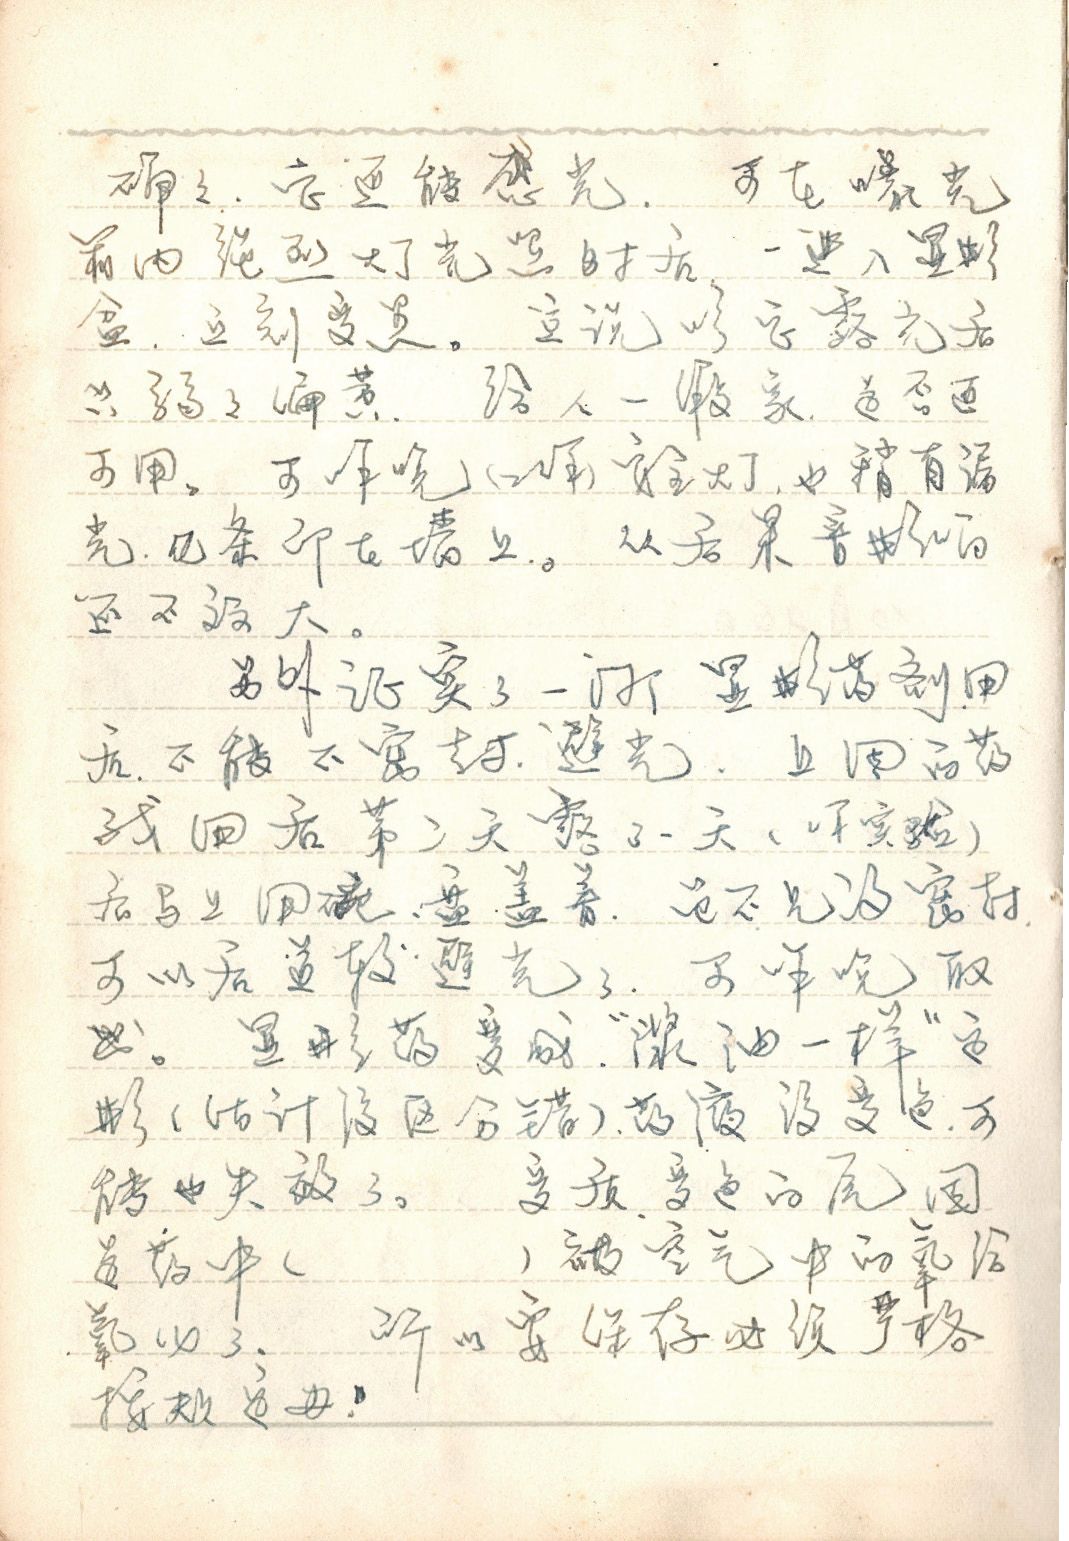 确之.它还能感光. 可在曝光
箱内强烈灯光照时后,一进入显影
盒.立刻变黑。 这说明它露光后
只弱之偏黄. 给人一假象.是否还
可用。 可昨晚(口胶)安全灯,也稍有漏
光.几条印在墙上。 从后果看影响
还不致大。
另外证实了一所 显影药剂.用
后.不能不密封.避光. 且用的药
我用后第二天露了一天(下实验)
后马上用碗.盖盖着. 也不见得密封.
可以后是较避光了. 可昨晚取
出。 显影药变成."酱油一样"定
影(估计没区分错).药液没变色.可
能也失效了。 变质.变色的原因
是药中( )被空气中的氧给
氧化了. 所以要保存必须严格
按规定毋!